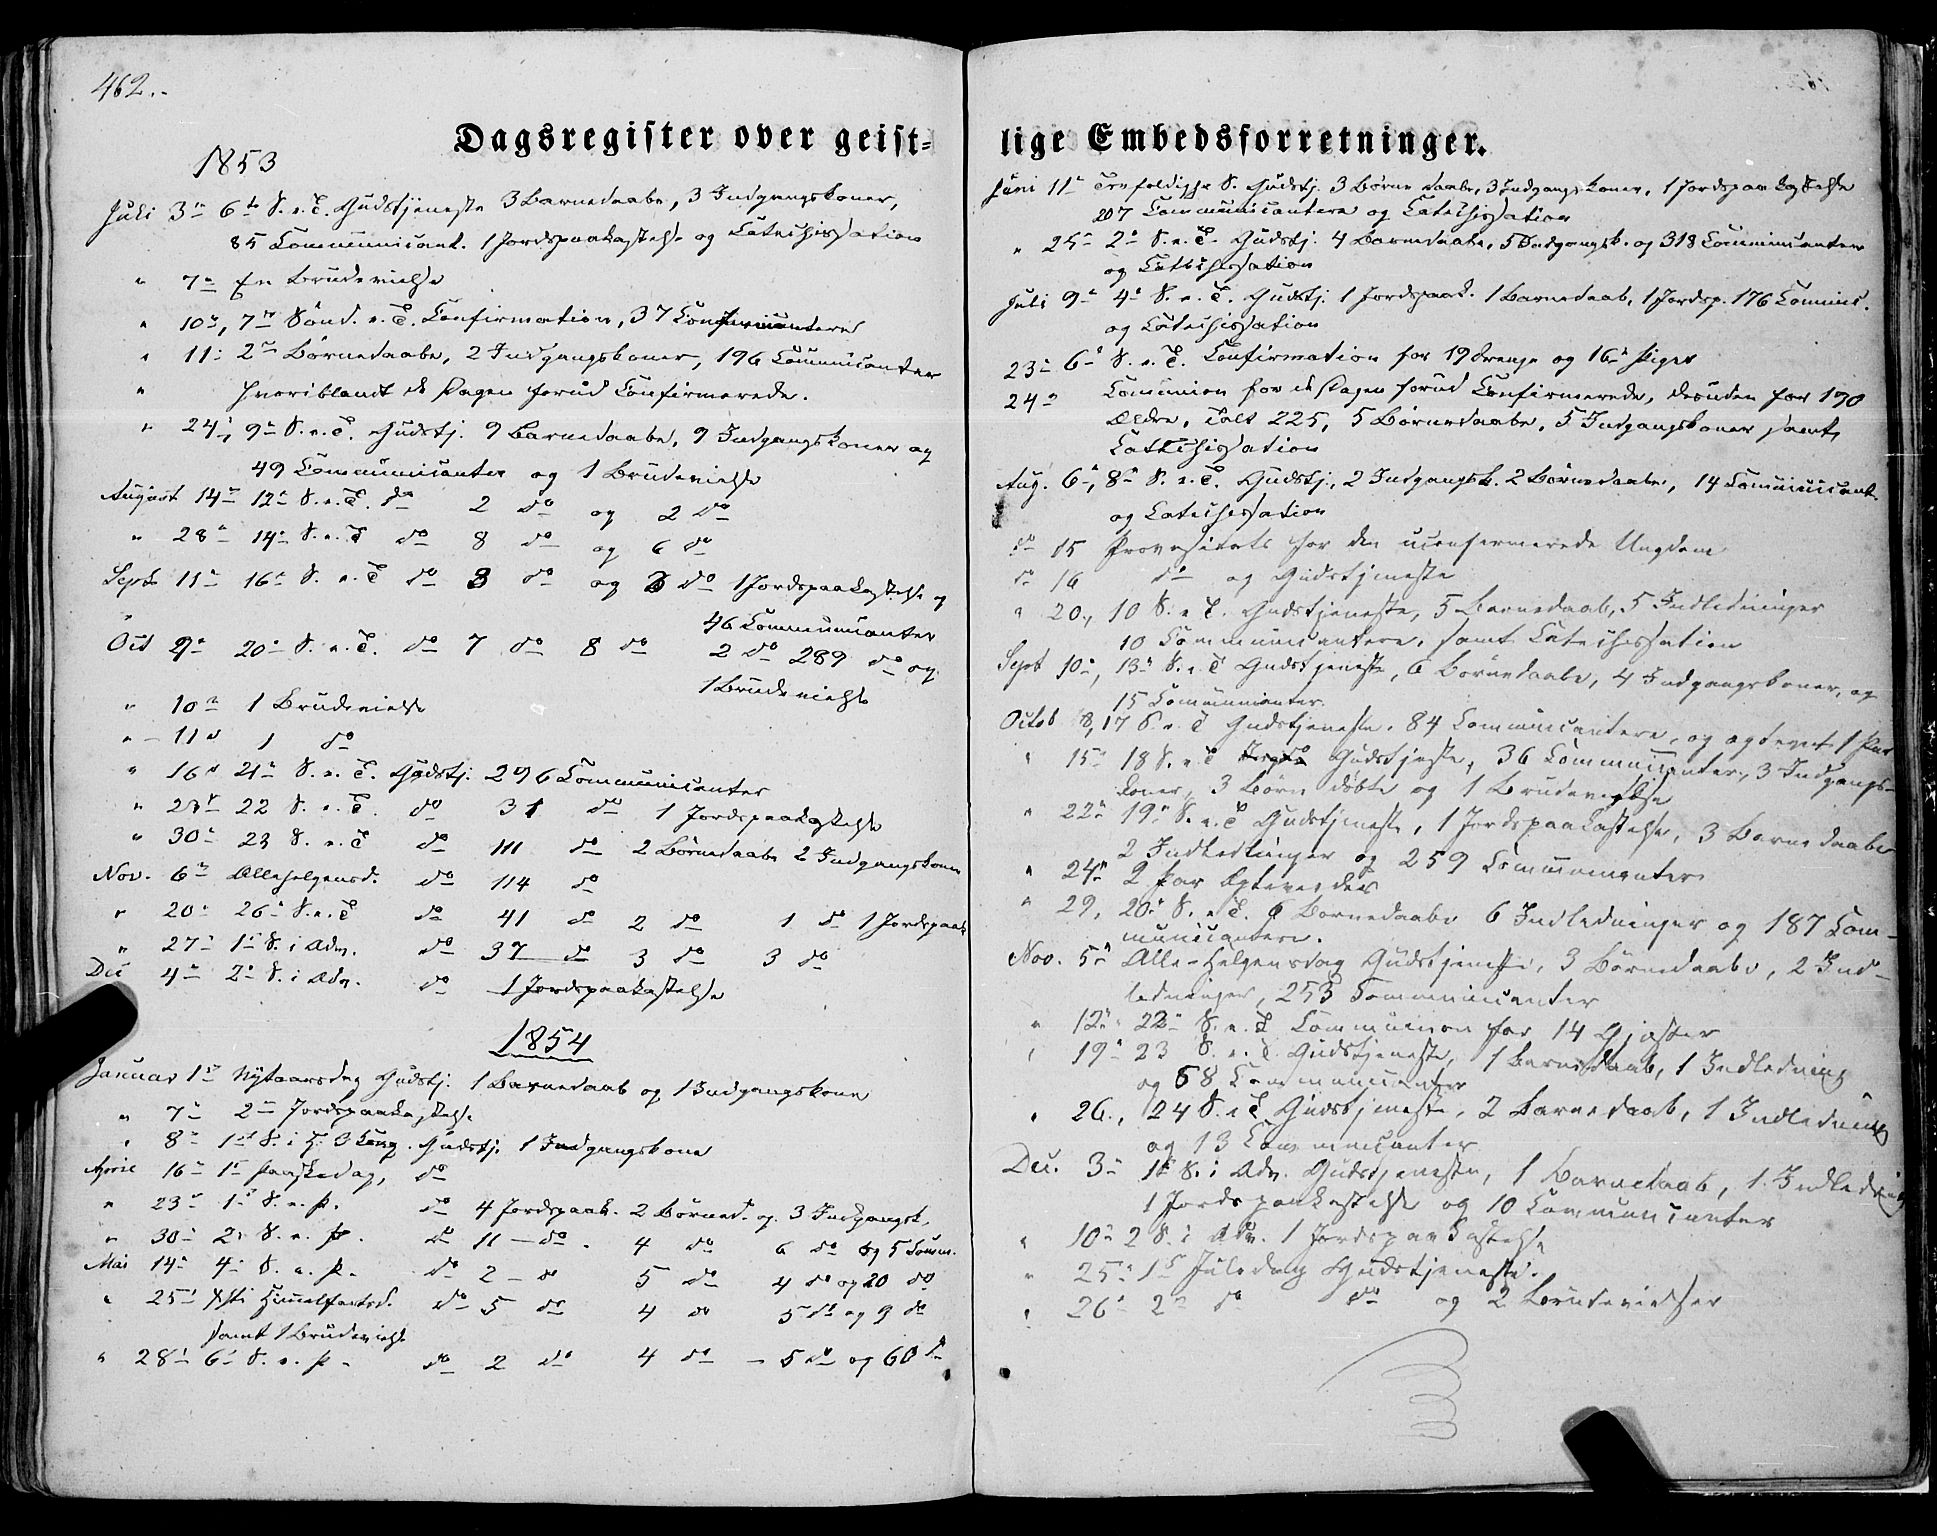 462.-
Dagsregister over geist=
1853
Juli 3die 6te S. e. T. Gudstjeneste 3 Barnedaabe, 3 Indgangskoner,
85 Communicant. 1 Jordspaakastelse og Catechisation
" 7de En Brudevielse
" 10de, 7de Sönd. e. T. Confirmation, 37 Confirmantere
" 11: 2de Börnedaabe, 2 Indgangskoner, 196 Communicanter
" hvoriblandt de Dagen forud Confirmerede.
" 24de, 9de S. e. T. Gudstj. 9 Barnedaabe, 9 Indgangskoner og
49 Communicanter og 1 Brudevielse
August 14de 12te S. e. T. do 2 do og 2 do
" 28de 14de S. e. T do 8 do og 6 do
Sept 11te 16de S. e. T do 3 do og 3 do 1 Jordspaakastelse og
" 46 Communicanter
Oct 9de 20de S. e. T. do 7 do 8 do 2 do 289 do og
1 Brudevielse
" 10de 1 Brudevielse
" - 11te 1 do
" 16de 21de S. e. T. Gudstj. 296 Communicanter
" 23de 22 S. e. T. do 31 do 1 Jordspaakastelse
" 30de 23 S. e. T do 111 do 2 Börnedaabe 2 Indgangskoner
Nov. 6te Allehelgensd. do 114 do
" 20de 26de S. e. T do 41 do 2 do 1 do 1 Jordspaak
" 27de 1ste S. i Adv. do 37 do 3 do 3 do
Dec 4de 2den S. i Adv. do 1 Jordspaakastelse
1854
Januar 1ste Nytaarsdag Gudstj. 1 Barnedaab og 1 Indgangskone
" 7de 2de Jordspaakastelse
" 8de 1ste S. i H. 3 Kong. Gudstj. 1 Indgangskone
April 16de 1ste Paaskedag, do
" 23de 1ste S. e. P. do 4 Jordspaak. 2 Börned. og 3 Indgangsk.
" 30de 2den S. e. P. do 11 - do. 4 do 6 do og 5 Comm.
Mai 14de 4de S. e. P. do 2 - do 5 do 4 do og 20 do
" 25de Xsti Himmelfartsd. do 5 do 4 do 5 do og 9 do
samt 1 Brudevielse
" 28de 6te S. e. P - do 2 do 4 do - 5 do og 60 do
lige Embedsforretninger.
Juni 11te Trefoldighs S. Gudstj. 3 Börne daabe, 3 Indgangskoner, 1 Jordspaakastelse
207 Communicantere og Catechisation
" 25de 2den S. e. T. Gudstj. 4 Barnedaabe, 5 Indgangsk. og 318 Communicantere
og Catechisation
Juli 9de 4de S. e. T. Gudstj. 1 Jordspaak. 1 Barnedaab, 1 Jordsp. 176 Commun.
og Catechisation
23de 6te S. e. T. Confirmation for 19 Drenge og 16 Piger
24de Communion for de Dagen forud Confirmerede, desuden for 190
Ældre, Talt 225, 5 Börnedaabe, 5 Indgangskoner samt
Catechisation
Aug. 6te, 8de S. e. T. Gudstj., 2 Indgangsk. 2 Börnedaabe, 14 Communicant.
og Catechisation
do 15 for den uconfirmerede Ungdom
do 16 do og Gudstjeneste
" 20., 10 S. e T. Gudstjeneste, 5 Barnedaab, 5 Indledninger
10 Communicantere, samt Catechisation
Sept 10de, 13de S. e T Gudstjeneste, 6 Börnedaabe, 4 Indgangskoner, og
15 Communicanter.
Octob 8, 17 S. e T Gudstjeneste. 84 Communicantere, og egteviet 1 Par
" 15de 18 S. e T Gudstjeste, 36 Communicanter, 3 Indgangs-
koner, 3 Börn döbte og 1 Brudevielse
" 22de 19de S. e. T Gudstjeneste, 1 Jordspaakastelse, 3 Barnedaabe
2 Indledninger og 259 Communicanter
" 24de 2 Par Egteviedes
" 29, 20de S. e T. 6 Börnedaabe 6 Indledninger og 187 Com-
municantere.
Nov. 5te Alle-Helgensdag Gudstjeneste, 3 Börnedaabe, 2 Ind-
ledninger, 253 Communicanter
" 12te 22de S. e. T Communion for 14 Gjester
" 19de 23 S. e. T. Gudstjeneste, 1 Barnedaab, 1 Indledning
og 58 Communicanter
" 26., 24 S. e T Gudstjeneste, 2 Barnedaab, 1 Indledning
og 13 Communicanter
Dec. 3de 1ste S. i Adv. Gudstjeneste, 1 Barnedaab, 1 Indledning
1 Jordspaakastelse og 10 Communicanter
" 10de 2 S. i Adv. 1 Jordspaakastelse
" 25de 1ste Juledag Gudstjeneste.
" 26de 2den do do og 2 Brudevielser